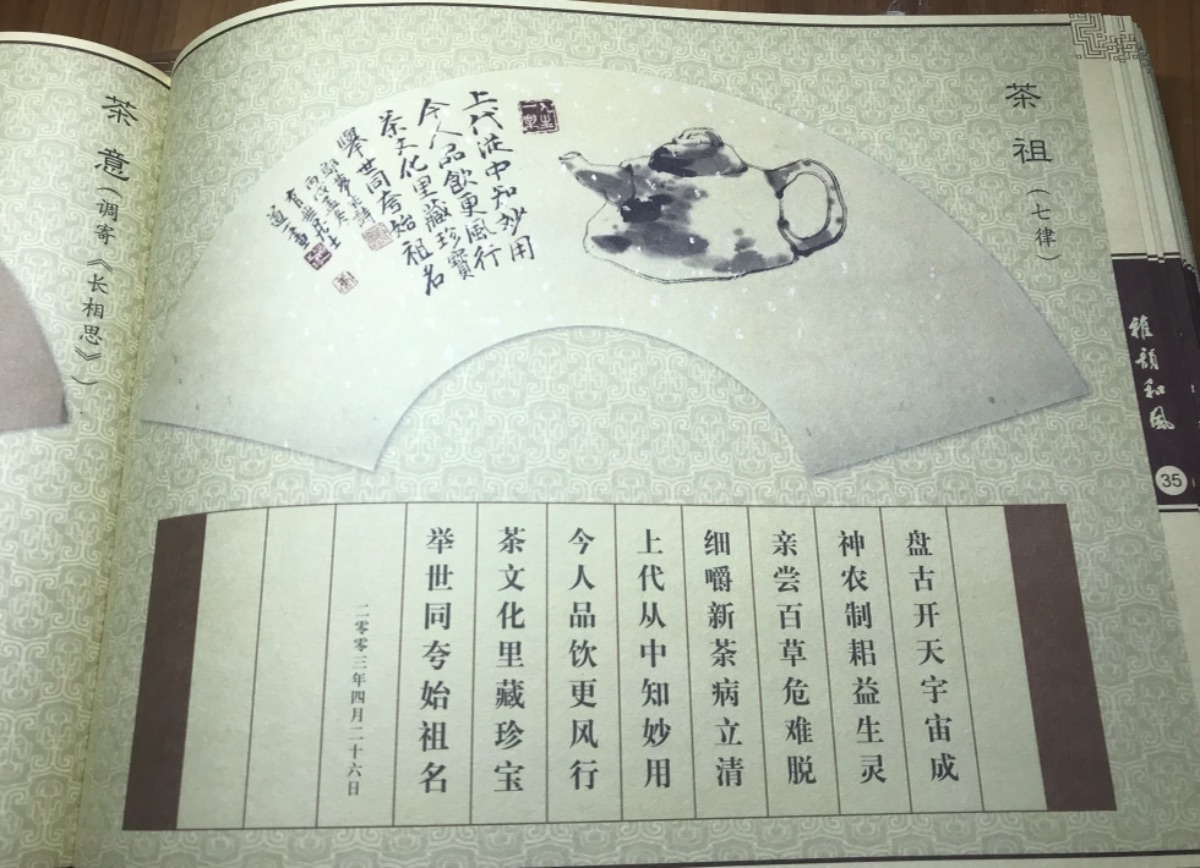 茶祖(七律)
上代從中知妙用
今人品飲更風行
茶文化里藏珍寶
舉世同夸始祖名
盘古开天宇宙成
神农制耜益生灵
亲尝百草危难脱
细嚼新茶病立清
上代从中知妙用
今人品饮更风行
茶文化里藏珍宝
举世同夸始祖名
二零零三年四月二十六日
雅韻和風
35
茶意(调寄《长相思》)